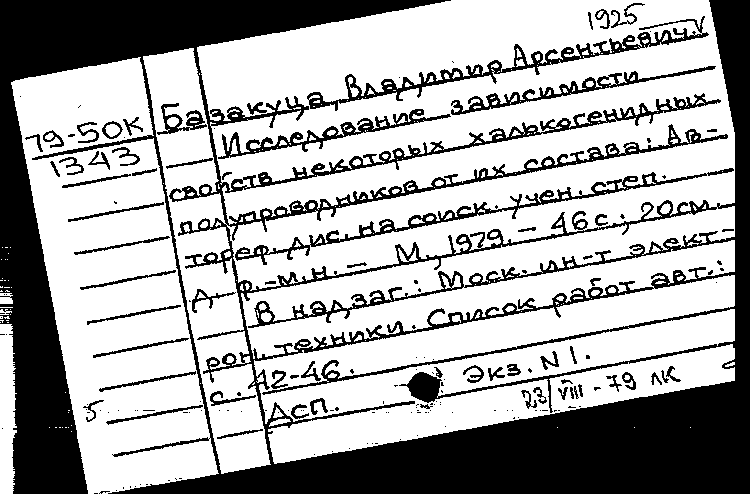 1925
79-50К
1343
Базакуца, Владимир Арсентьевич.
Исследование зависимости
свойств некоторых халькогенидных
полупроводников от их состава: Ав-
тореф. дис. на соиск. учен. степ.
д. ф.-м.н. - М., 1979. - 46 с.; 20см.
В надзаг.: Моск. ин-т элект-
рон. техники. Список работ авт.:
с. 42-46.
Экз. N 1.
5
ДСП.
23 VIII - 79 ЛК